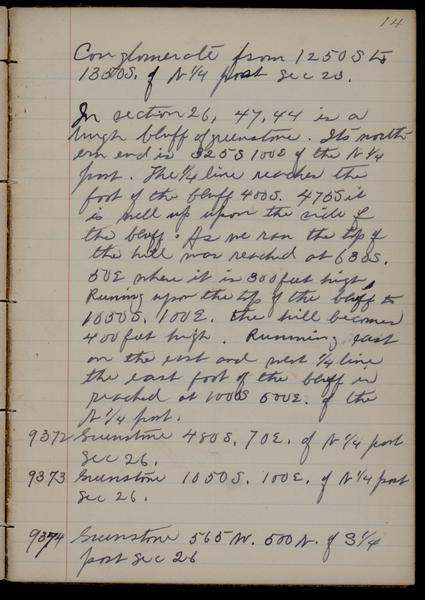 14
Conglomerate from 1250 S to
1350 S. of N 1/4 post Sec 23.
In section 26, 47, 44 is a
high bluff of greenstone. Its north-
ern end is 325 S 100 E of the N 1/4
post. The 1/4 line reaches the
foot of the bluff 400 S. 475 S it
is well up upon the side of
the bluff. As we ran the top of
the hill was reached at 630 S.
50 E where it is 300 feet high,
Running upon the top of the bluff to
1050 S. 100 E. the hill becomes
400 feet high. Running east
on the east and west 1/4 line
the east foot of the bluff is
reached at 1000 S 500 E. of the
N 1/4 post.
9372 Greenstone 480 S. 70 E. of N 1/4 post
Sec 26.
9373 Greenstone 1050 S. 100 E. of N 1/4 post
Sec 26.
9374 Greenstone 565 W. 500 N. of S 1/4
post Sec 26